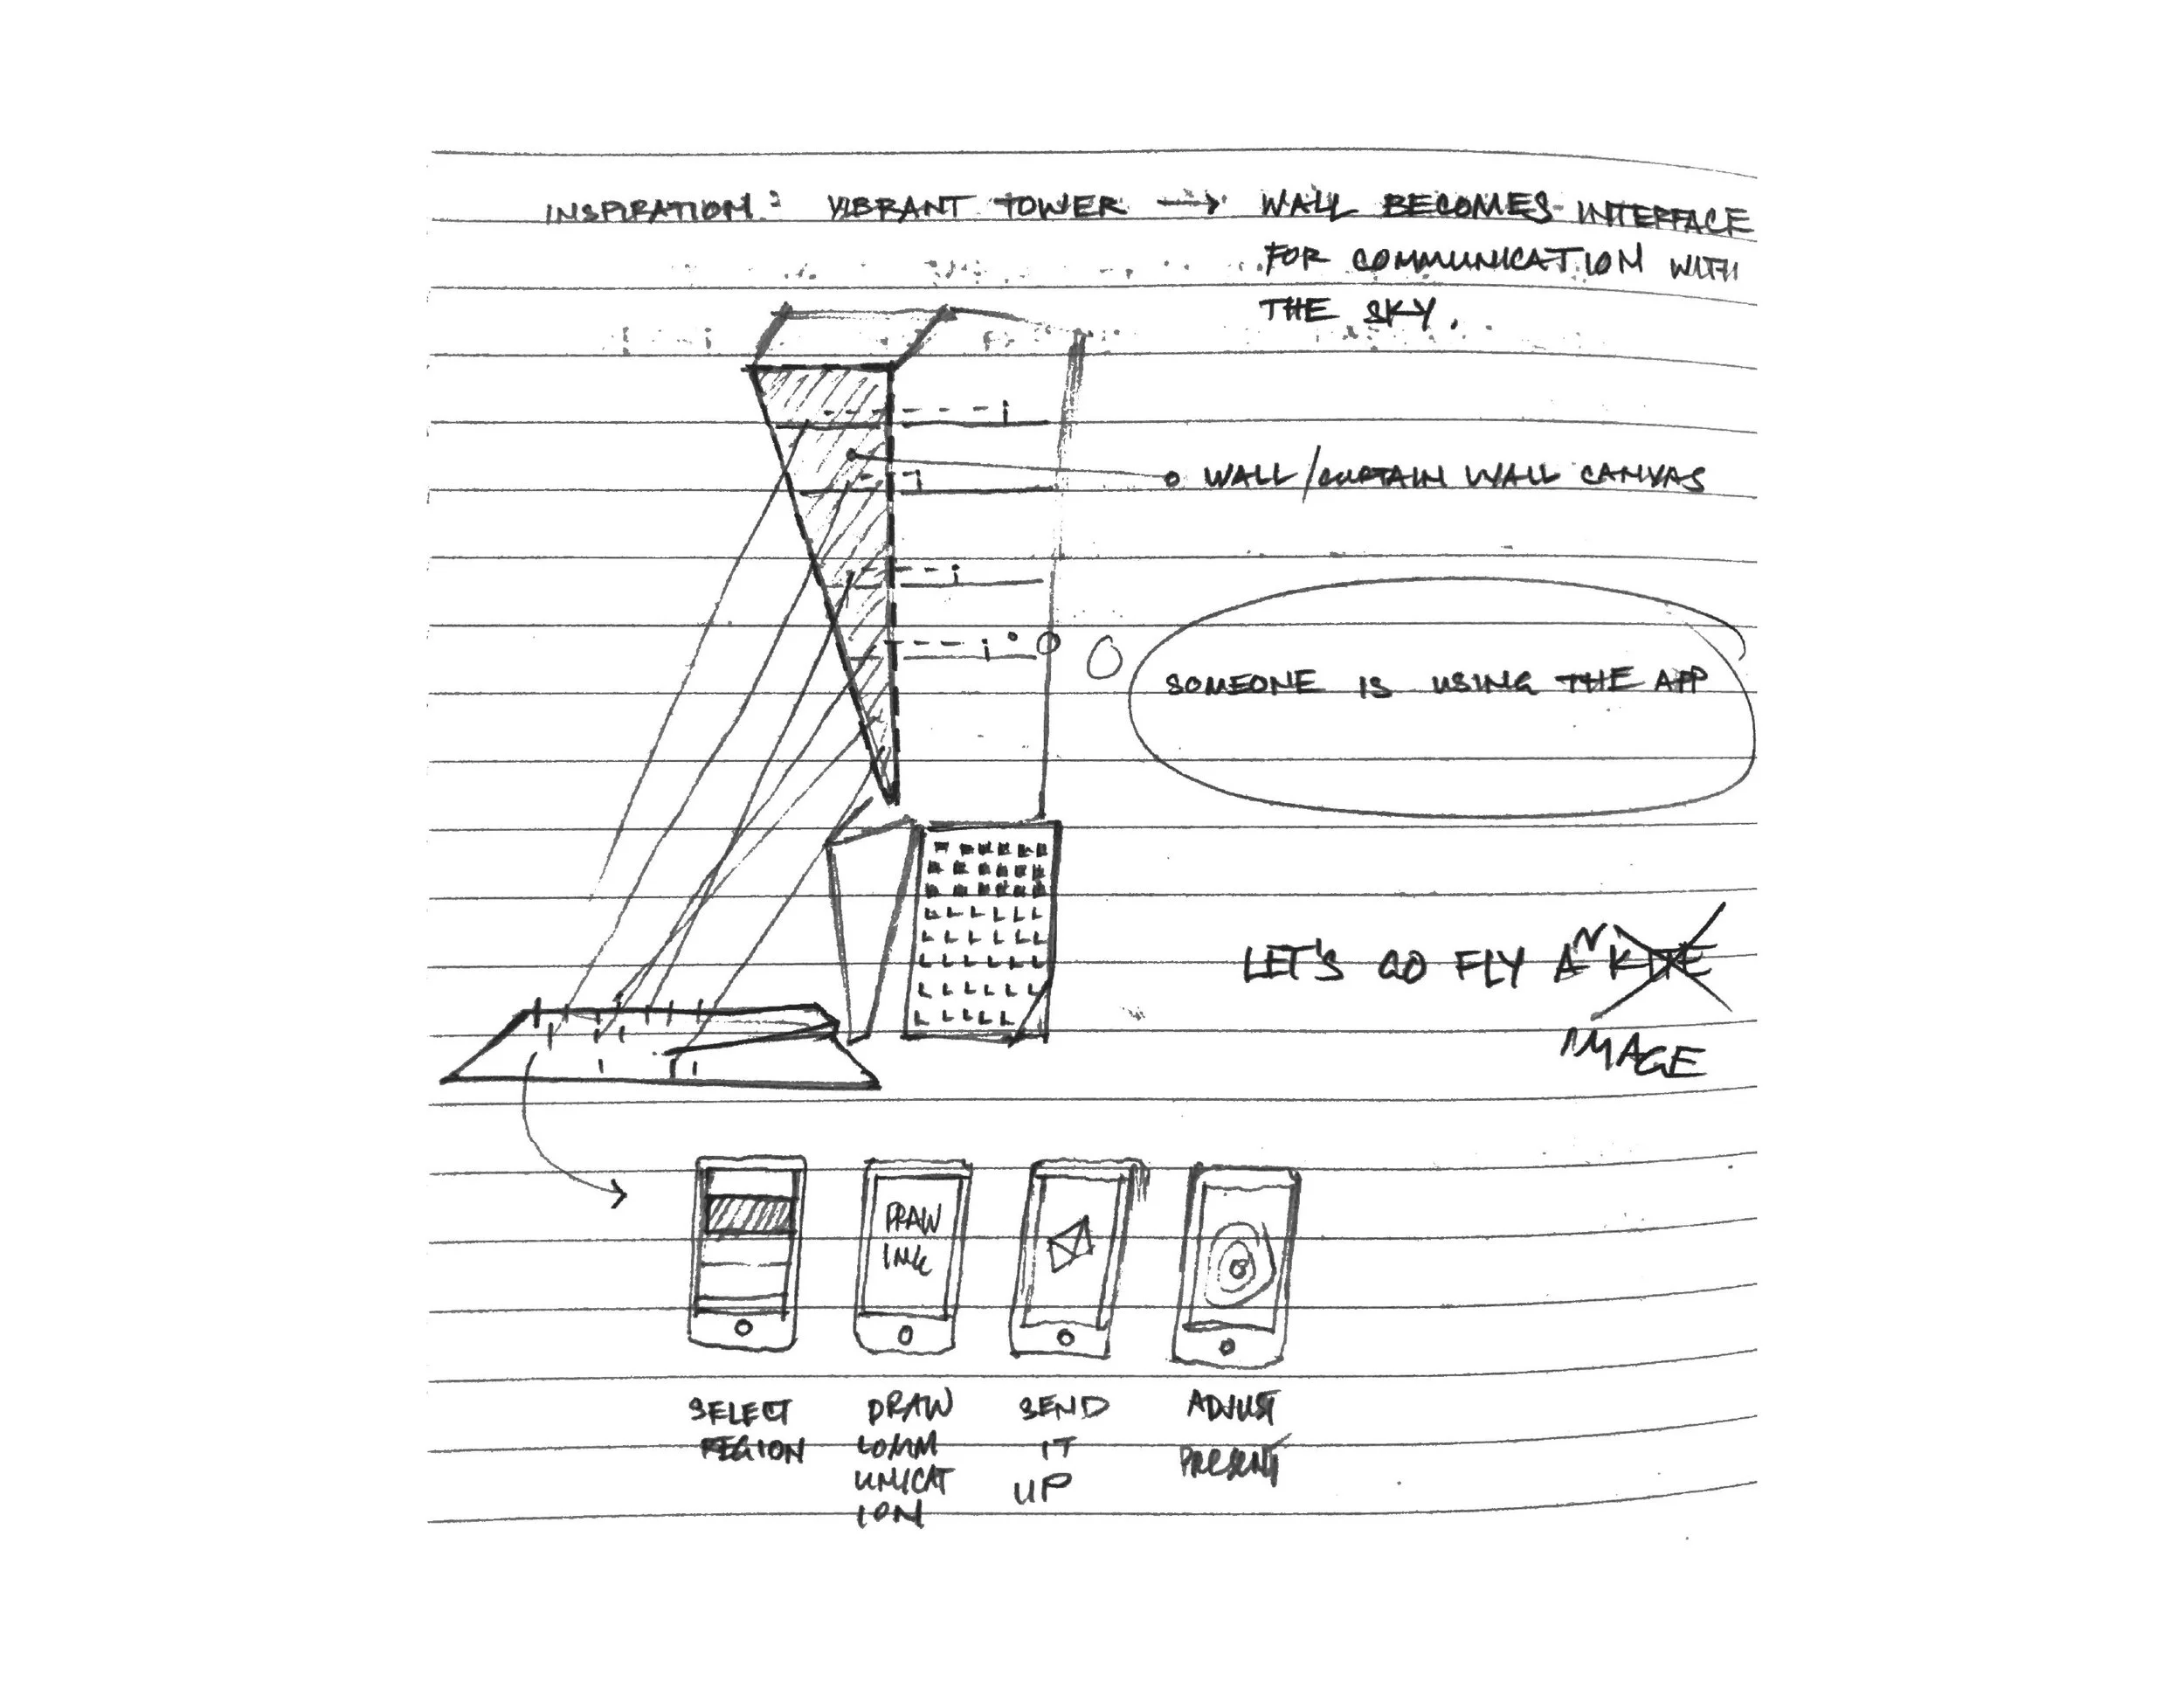 INSPIRATION: VIBRANT TOWER → WALL BECOMES INTERFACE
FOR COMMUNICATION WITH
THE SKY.
WALL/CURTAIN WALL CANVAS
SOMEONE IS USING THE APP
LET'S GO FLY AN KITE
IMAGE
DRAW
INK
SELECT
REGION
DRAW
COMM
UNICAT
ION
SEND
IT
UP
ADJUST
PRESENT